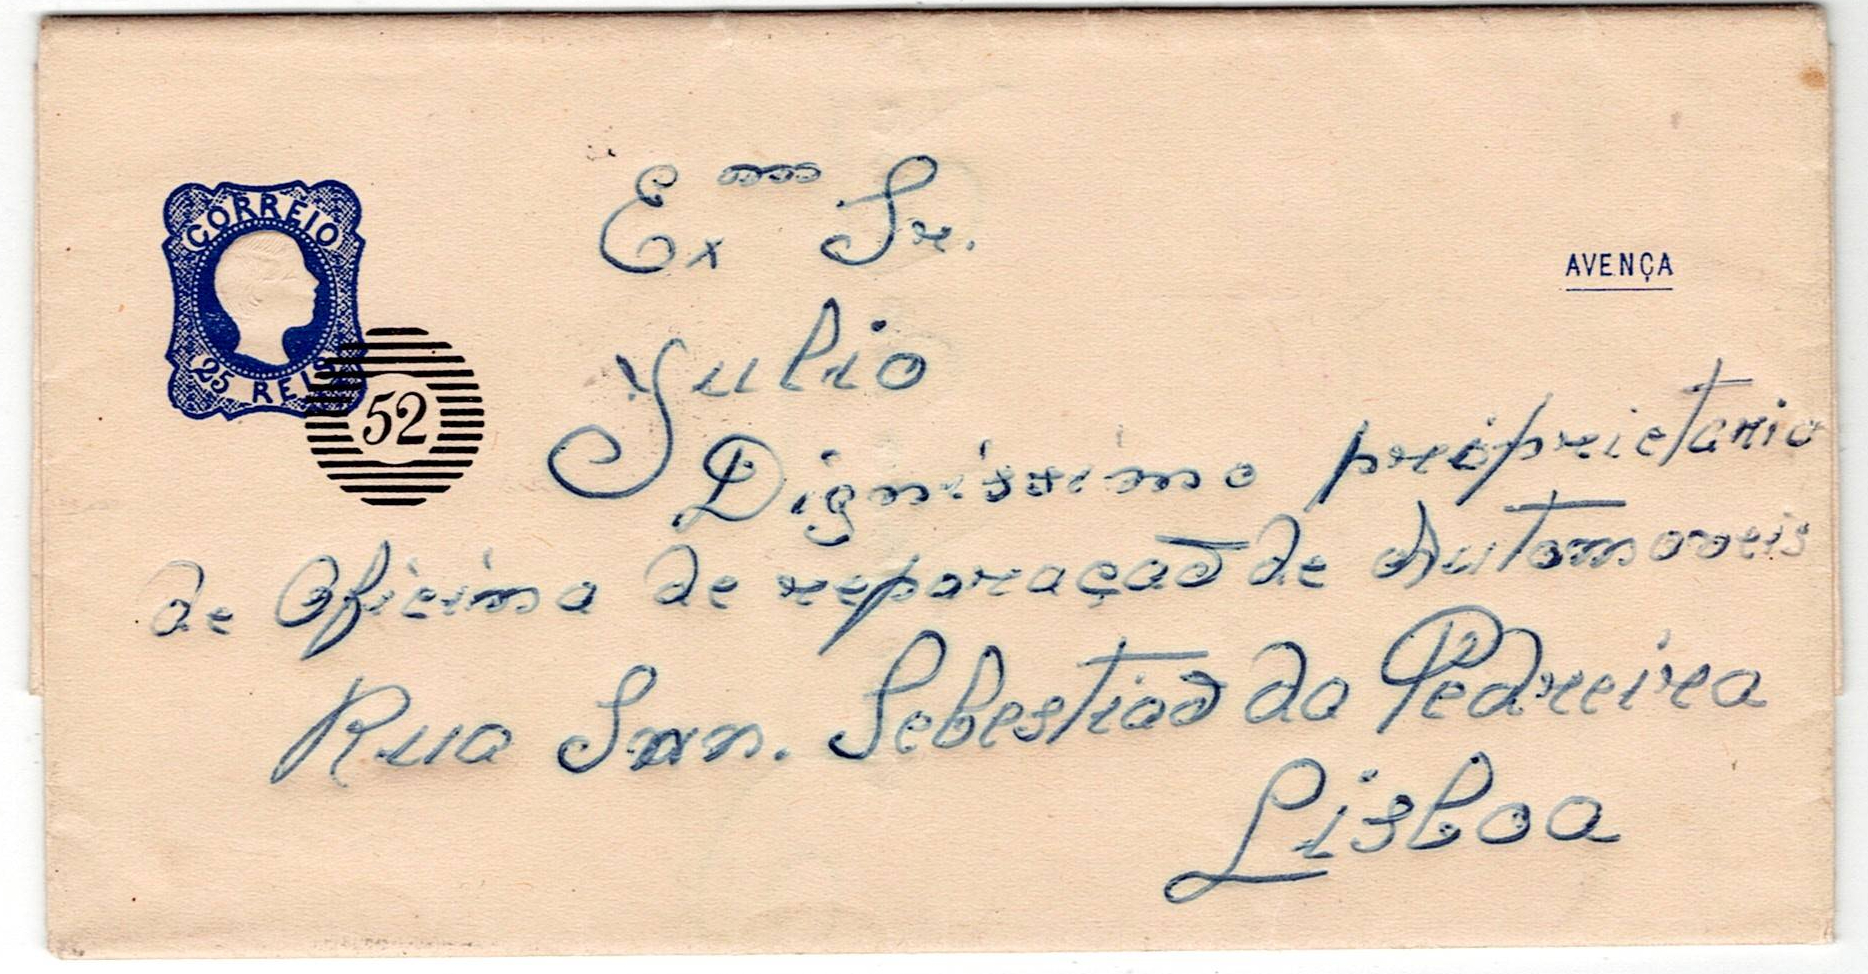 CORREIO
25 REIS
52
AVENÇA
Exmo Sr.
Julio
Digníssimo proprietario
de Oficina de reparação de Automoveis
Rua San. Sebestião da Pedreira
Lisboa